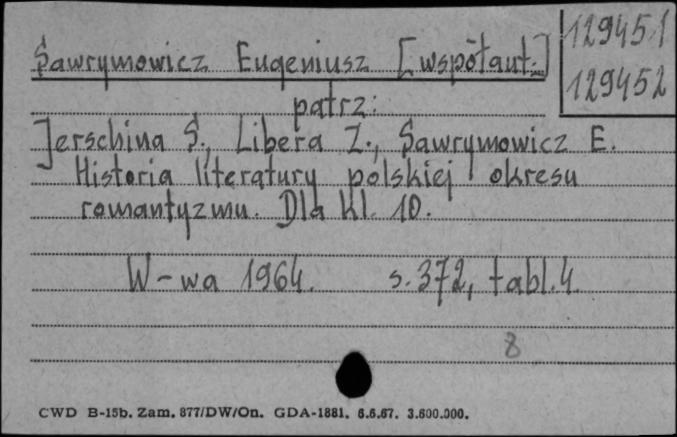 129451
Sawrymowicz Eugeniusz [współaut.]
129452
patrz:
Jerschina S., Libera Z., Sawrymowicz E.
Historia literatury polskiej okresu
romantyzmu. Dla kl. 10.
W-wa 1964. s. 372, tabl. 4.
8
CWD B-15b. Zam. 877/DW/On. GDA-1881. 6.6.67. 3.600.000.